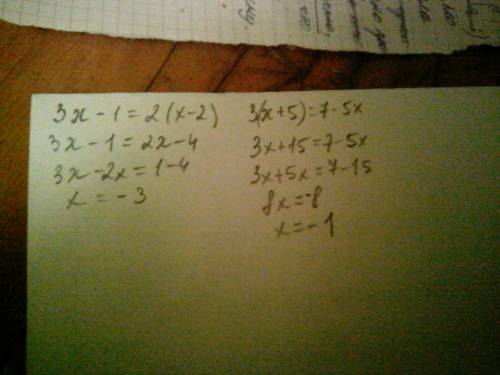 3x - 1 = 2(x - 2)
3x - 1 = 2x - 4
3x - 2x = 1 - 4
x = - 3
3(x + 5) = 7 - 5x
3x + 15 = 7 - 5x
3x + 5x = 7 - 15
8x = -8
x = - 1